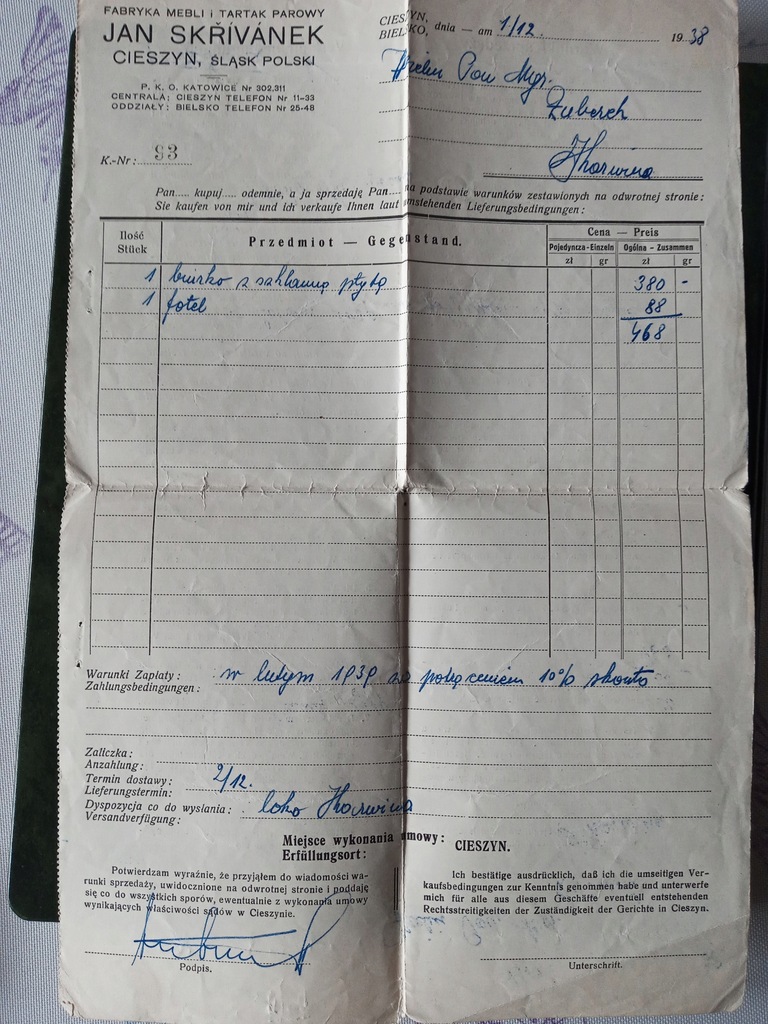 FABRYKA MEBLI i TARTAK PAROWY
JAN SKŘIVÁNEK
CIESZYN, ŚLĄSK POLSKI
P. K. O. KATOWICE Nr 302.311
CENTRALA: CIESZYN TELEFON Nr 11-33
ODDZIAŁY: BIELSKO TELEFON Nr 25-48
K.-Nr: 93
CIESZYN,
BIELSKO, dnia — am 1/12. 1938
Pan Mgr.
Karwina
Pan..... kupuj..... odemnie, a ja sprzedaję Pan..... na podstawie warunków zestawionych na odwrotnej stronie:
Sie kaufen von mir und ich verkaufe Ihnen laut umstehenden Lieferungsbedingungen:
Ilość
Stück
Przedmiot — Gegenstand.
Cena — Preis
Pojedyncza-Einzeln Ogólna - Zusammen
zł gr zł gr
1 biurko z szklanną płytą 380 -
1 fotel 88
468
Warunki Zapłaty: w lutym 1939 za potrąceniem 10% skonto
Zahlungsbedingungen:
Zaliczka:
Anzahlung:
Termin dostawy: 2/12.
Lieferungstermin:
Dyspozycja co do wysłania: loko Karwina
Versandverfügung:
Miejsce wykonania umowy: CIESZYN.
Erfüllungsort:
Potwierdzam wyraźnie, że przyjąłem do wiadomości wa-
runki sprzedaży, uwidocznione na odwrotnej stronie i poddaję
się co do wszystkich sporów, ewentualnie z wykonania umowy
wynikających właściwości sądów w Cieszynie.
Podpis.
Ich bestätige ausdrücklich, daß ich die umseitigen Ver-
kaufsbedingungen zur Kenntnis genommen habe und unterwerfe
mich für alle aus diesem Geschäfte eventuell entstehenden
Rechtsstreitigkeiten der Zuständigkeit der Gerichte in Cieszyn.
Unterschrift.